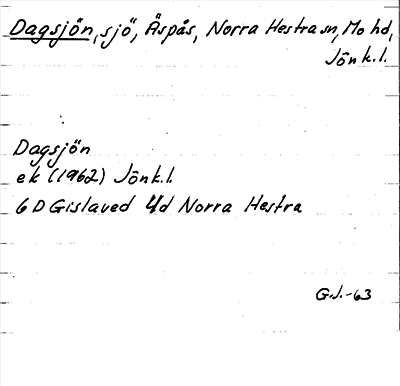 Dagsjön, sjö, Äspås, Norra Hestra sn, Mo hd,
Jönk.l.
Dagsjön
ek (1962) Jönk.l.
6 D Gislaved 4d Norra Hestra
G.J.-63